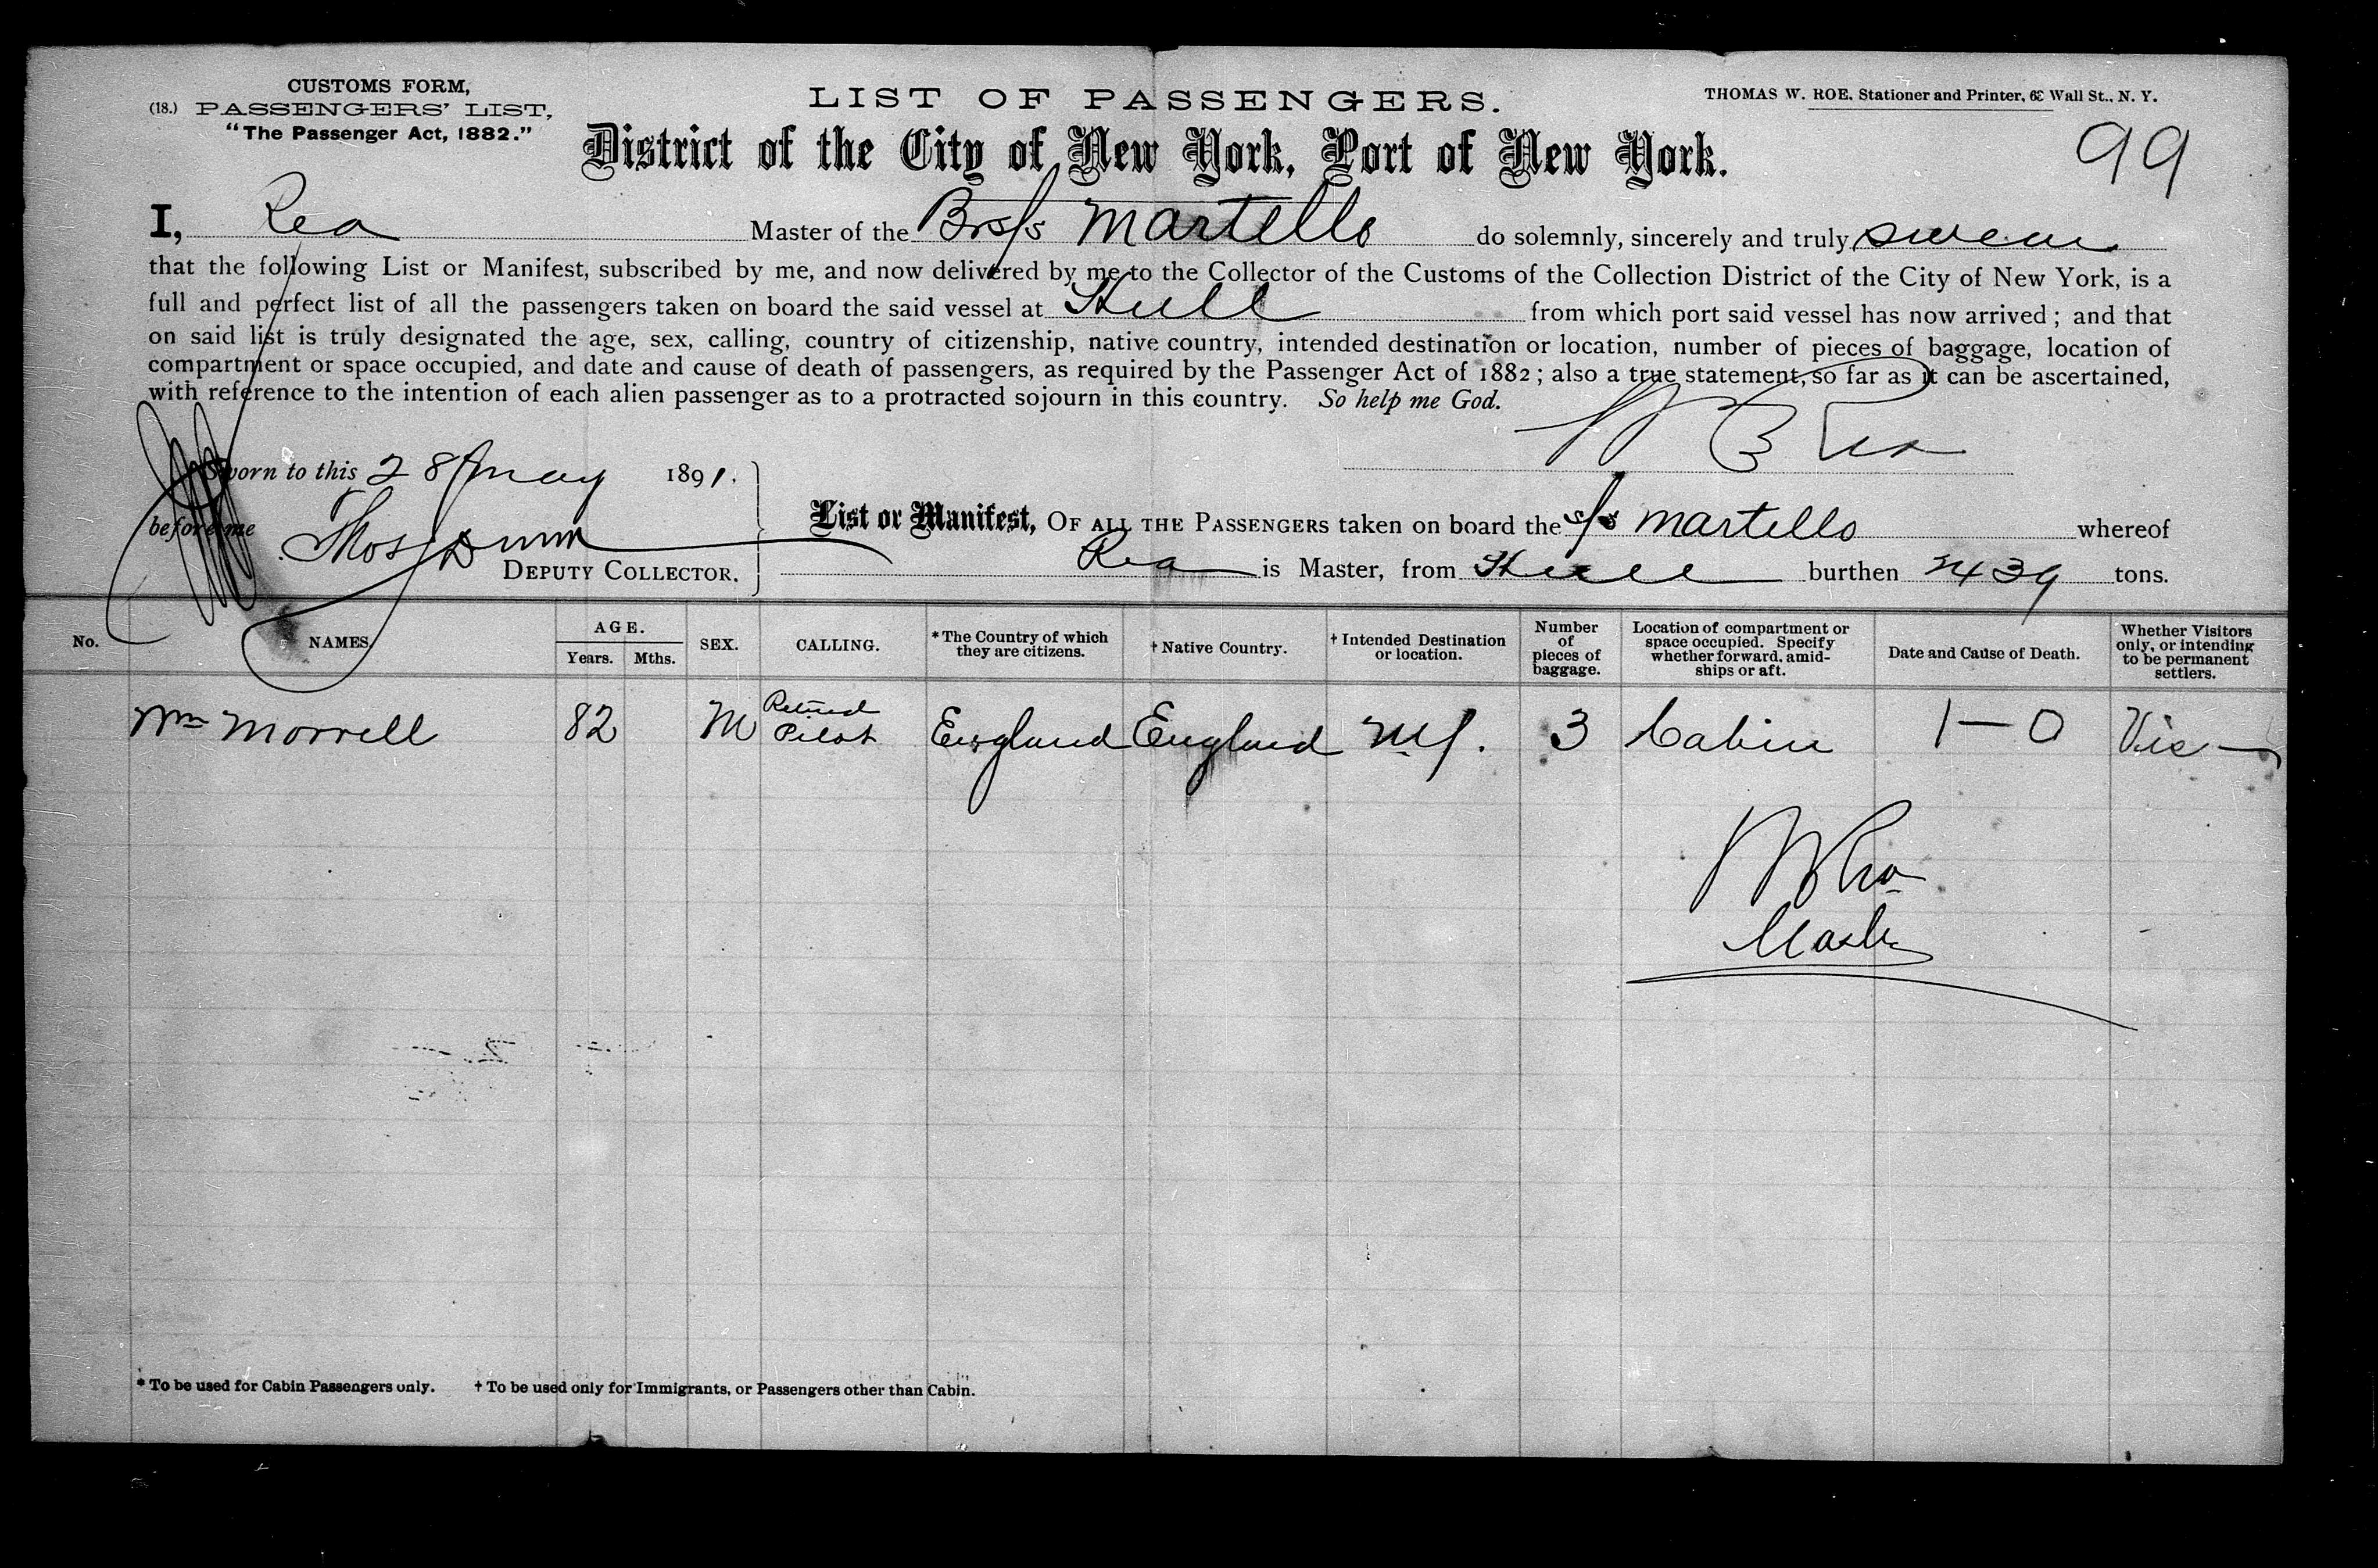 CUSTOMS FORM,
(18.) PASSENGERS' LIST,
"The Passenger Act, 1882."
LIST OF PASSENGERS.
THOMAS W. ROE, Stationer and Printer, 63 Wall St., N. Y.
District of the City of New York, Port of New York.
99
I, Rea Master of the Br s/s Martello do solemnly, sincerely and truly swear
that the following List or Manifest, subscribed by me, and now delivered by me to the Collector of the Customs of the Collection District of the City of New York, is a
full and perfect list of all the passengers taken on board the said vessel at Hull from which port said vessel has now arrived; and that
on said list is truly designated the age, sex, calling, country of citizenship, native country, intended destination or location, number of pieces of baggage, location of
compartment or space occupied, and date and cause of death of passengers, as required by the Passenger Act of 1882; also a true statement, so far as it can be ascertained,
with reference to the intention of each alien passenger as to a protracted sojourn in this country. So help me God.
Rea
Sworn to this 28 May 1891.
before me Thos Dunn
DEPUTY COLLECTOR.
List or Manifest, OF ALL THE PASSENGERS taken on board the s/s Martello whereof
Rea is Master, from Hull burthen 2439 tons.
No. NAMES. AGE. Years. Mths. SEX. CALLING. * The Country of which they are citizens. † Native Country. † Intended Destination or location. Number of pieces of baggage. Location of compartment or space occupied. Specify whether forward, amidships or aft. Date and Cause of Death. Whether Visitors only, or intending to be permanent settlers.
Wm Morrell 82 M Retired Pilot England England 3 Cabin 1—0 Vis
Rea
Master
* To be used for Cabin Passengers only. † To be used only for Immigrants, or Passengers other than Cabin.